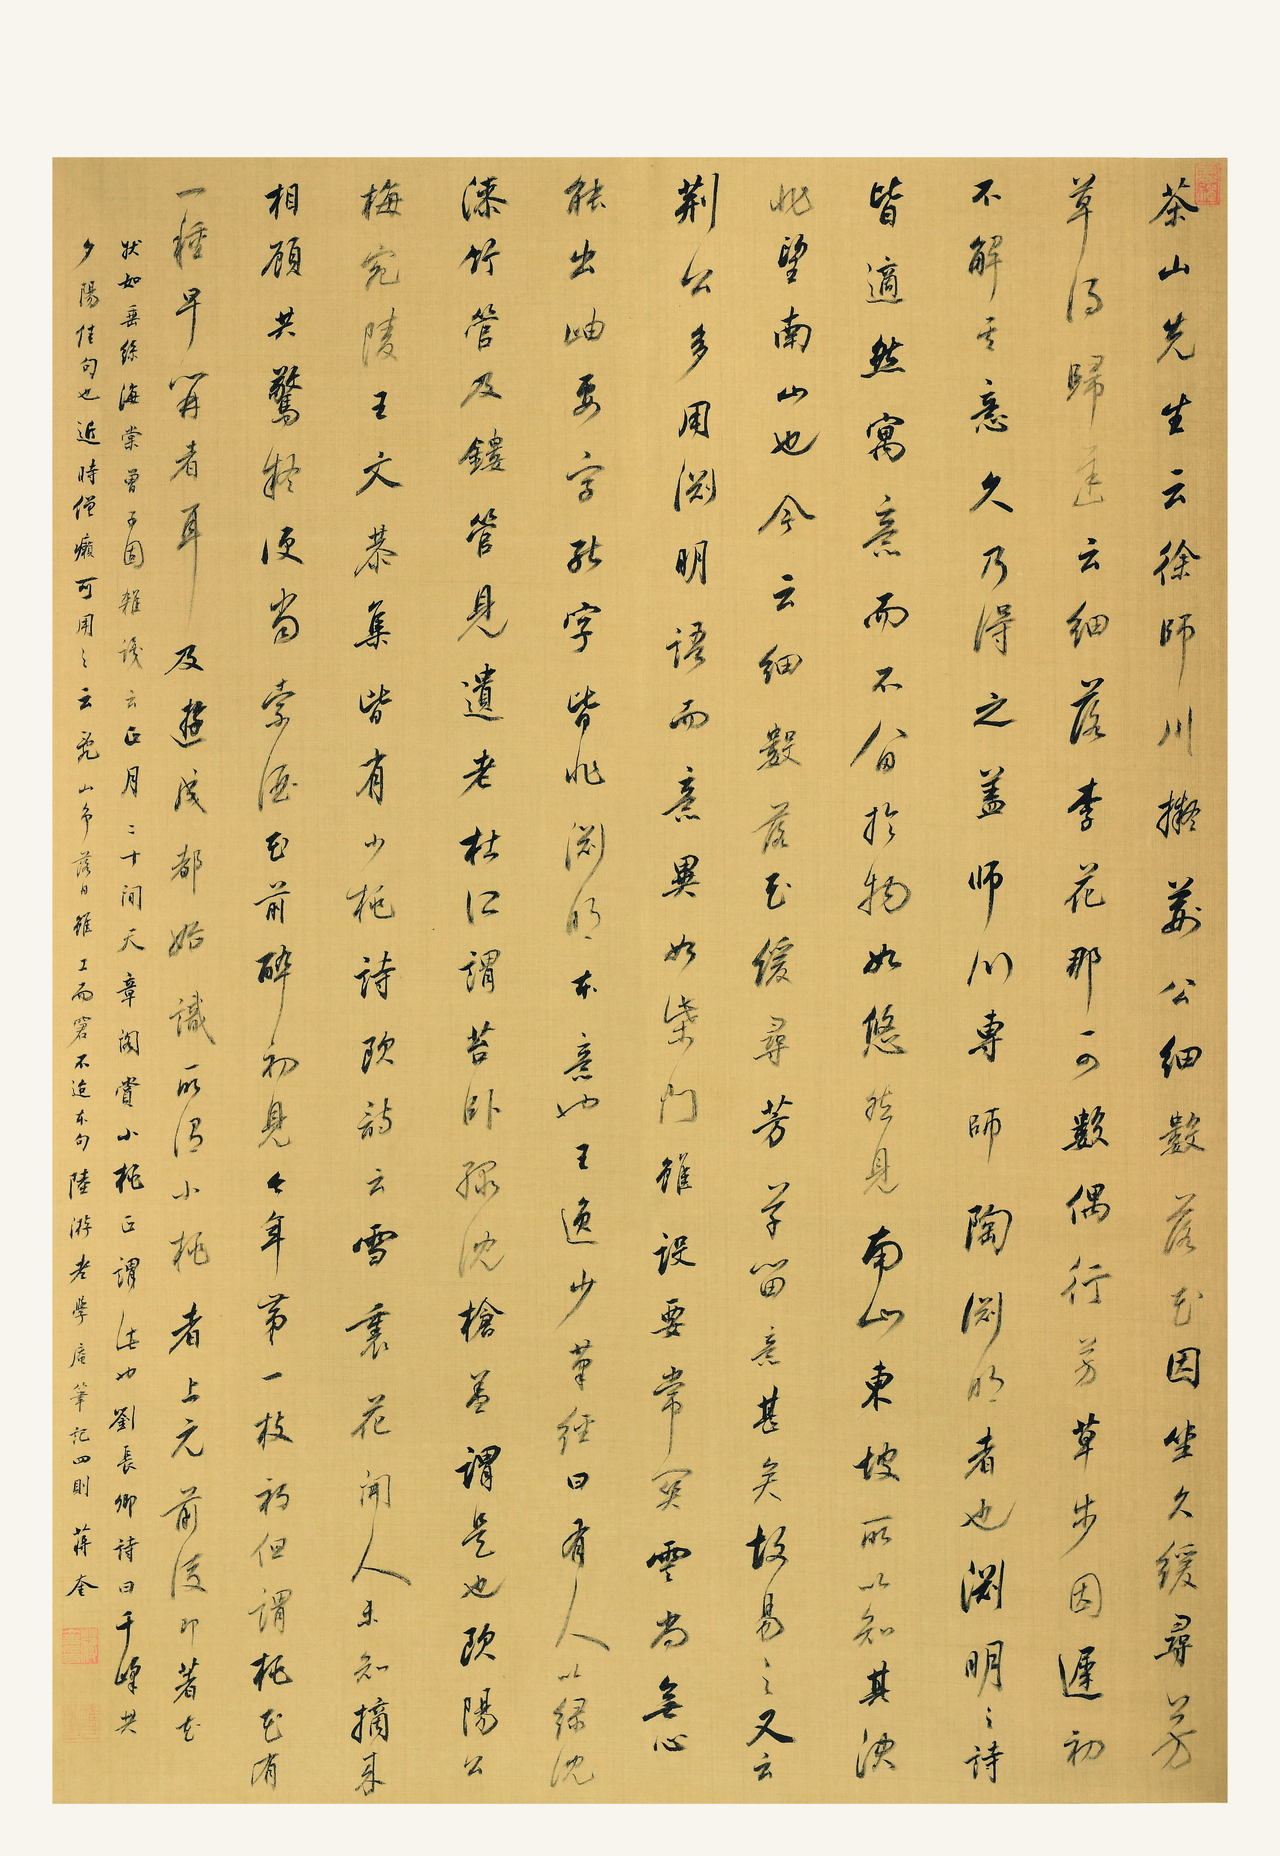 茶山先生云徐師川擬荆公細數落花因坐久緩尋芳
草得歸遲云細落李花那可數偶行芳草步因遲初
不解其意久乃得之蓋師川專師陶淵明者也淵明之詩
皆適然寓意而不留於物如悠然見南山東坡所以知其決
非望南山也今云細數落花緩尋芳草留意甚矣故易之又云
荆公多用淵明語而意異如柴門雖設要常關雲尚無心
能出岫要字能字皆非淵明本意也王逸少筆經曰有人以綠沈
漆竹管及鏤管見遺老杜所謂苔卧綠沈槍蓋謂是也歐陽公
梅宛陵王文恭集皆有小桃詩歐詩云雪裏花開人未知摘来
相顧共驚疑便當索酒花前醉初見今年第一枝初但謂桃花有
一種早開者耳及遊成都始識所謂小桃者上元前後即著花
狀如垂絲海棠曾子固雜識云正月二十間天章閣賞小桃正謂此也劉長卿詩曰千峰共
夕陽佳句也近時僧癩可用之云亂山爭落日雖工而窘不迨本句陸游老學庵筆記四則 蔣奎